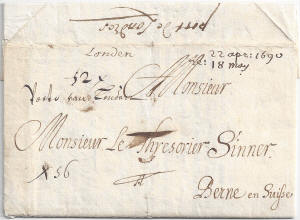 port de Londres
Londen
22 apr: 1690
18 may
52 x
Monsieur
Monsieur Le Thresorier Sinner.
x 56
Berne en Suisse